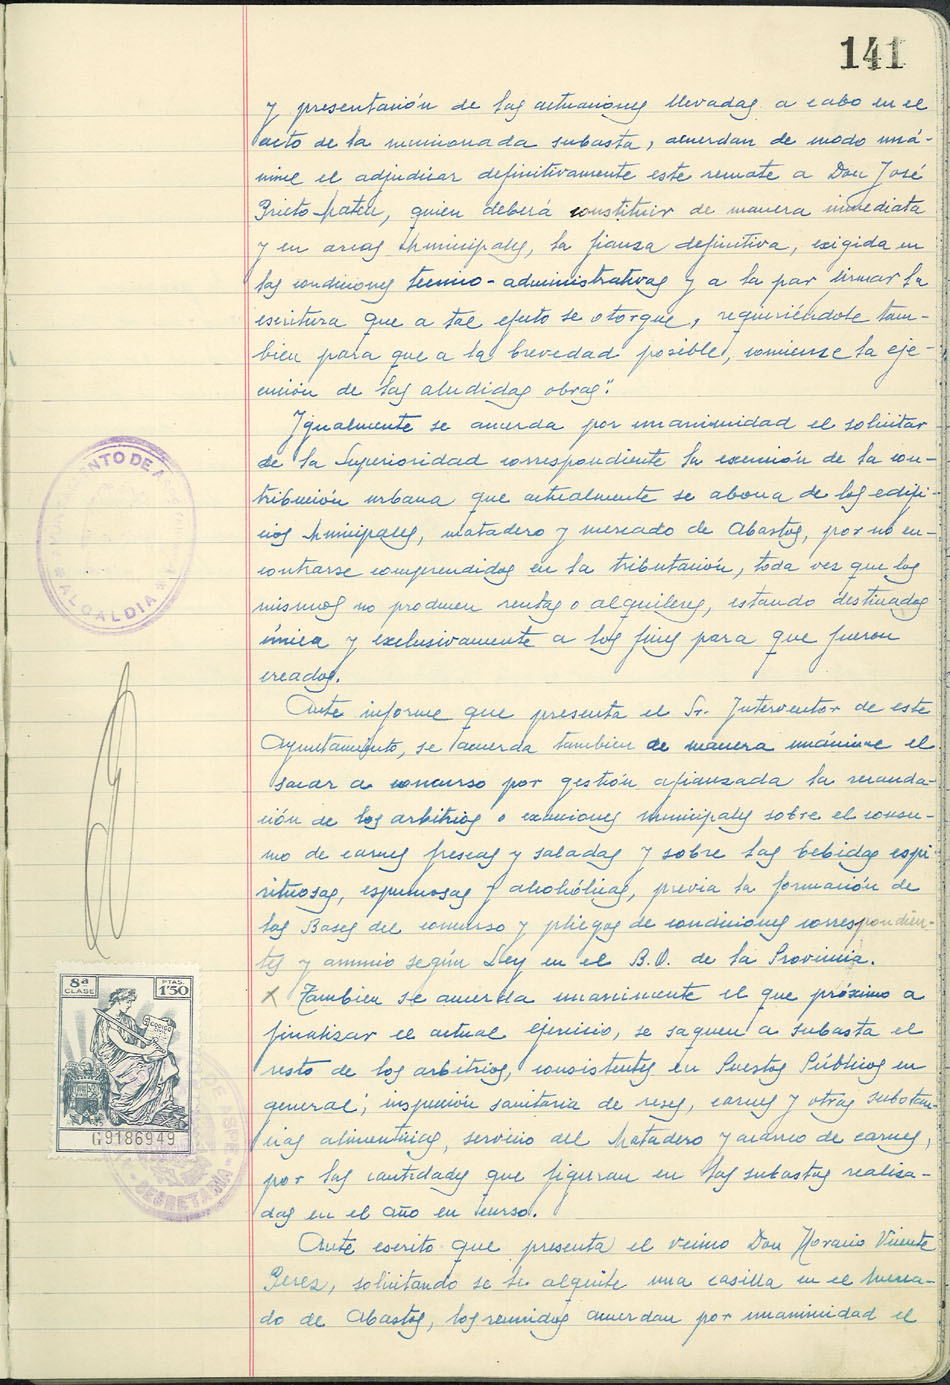 141
y presentación de las actuaciones llevadas a cabo en el
acto de la mencionada subasta, acuerdan de modo uná-
nime el adjudicar definitivamente este remate a Don José
Prieto Mateu, quien deberá constituir de manera inmediata
y en arcas Municipales, la fianza definitiva, exigida en
las condiciones tecnico-administrativas y a la par firmar la
escritura que a tal efecto se otorgue, requiriéndole tam-
bien para que a la brevedad posible, comience la eje-
cución de las aludidas obras".
Igualmente se acuerda por unanimidad el solicitar
de la Superioridad correspondiente la exención de la con-
tribución urbana que actualmente se abona de los edifi-
cios Municipales, matadero y mercado de Abastos, por no en-
contrarse comprendidos en la tributación, toda vez que los
mismos no producen rentas o alquileres, estando destinados
única y exclusivamente a los fines para que fueron
creados.
Ante informe que presenta el Sr. Interventor de este
Ayuntamiento, se acuerda tambien de manera unánime el
sacar a concurso por gestión afianzada la recauda-
ción de los arbitrios o exacciones municipales sobre el consu-
mo de carnes frescas y saladas y sobre las bebidas espi-
rituosas, espumosas y alcohólicas, previa la formación de
las Bases del concurso y pliegos de condiciones correspondien-
tes y anuncio según Ley en el B.O. de la Provincia.
X Tambien se acuerda unanimente el que próximo a
finalizar el actual ejercicio, se saquen a subasta el
resto de los arbitrios, consistentes en Puestos Públicos en
general; inspección sanitaria de reses, carnes y otras substan-
cias alimenticias, servicio del Matadero y acarreo de carnes,
por las cantidades que figuran en las subastas realiza-
das en el año en curso.
Ante escrito que presenta el vecino Don Horacio Vicente
Perez, solicitando se le alquile una casilla en el Merca-
do de Abastos, los reunidos acuerdan por unanimidad el
NTO DE A
* ALCALDIA *
8ª
CLASE
PTAS
1'50
G9186949
DE ASPE
SECRETARIA